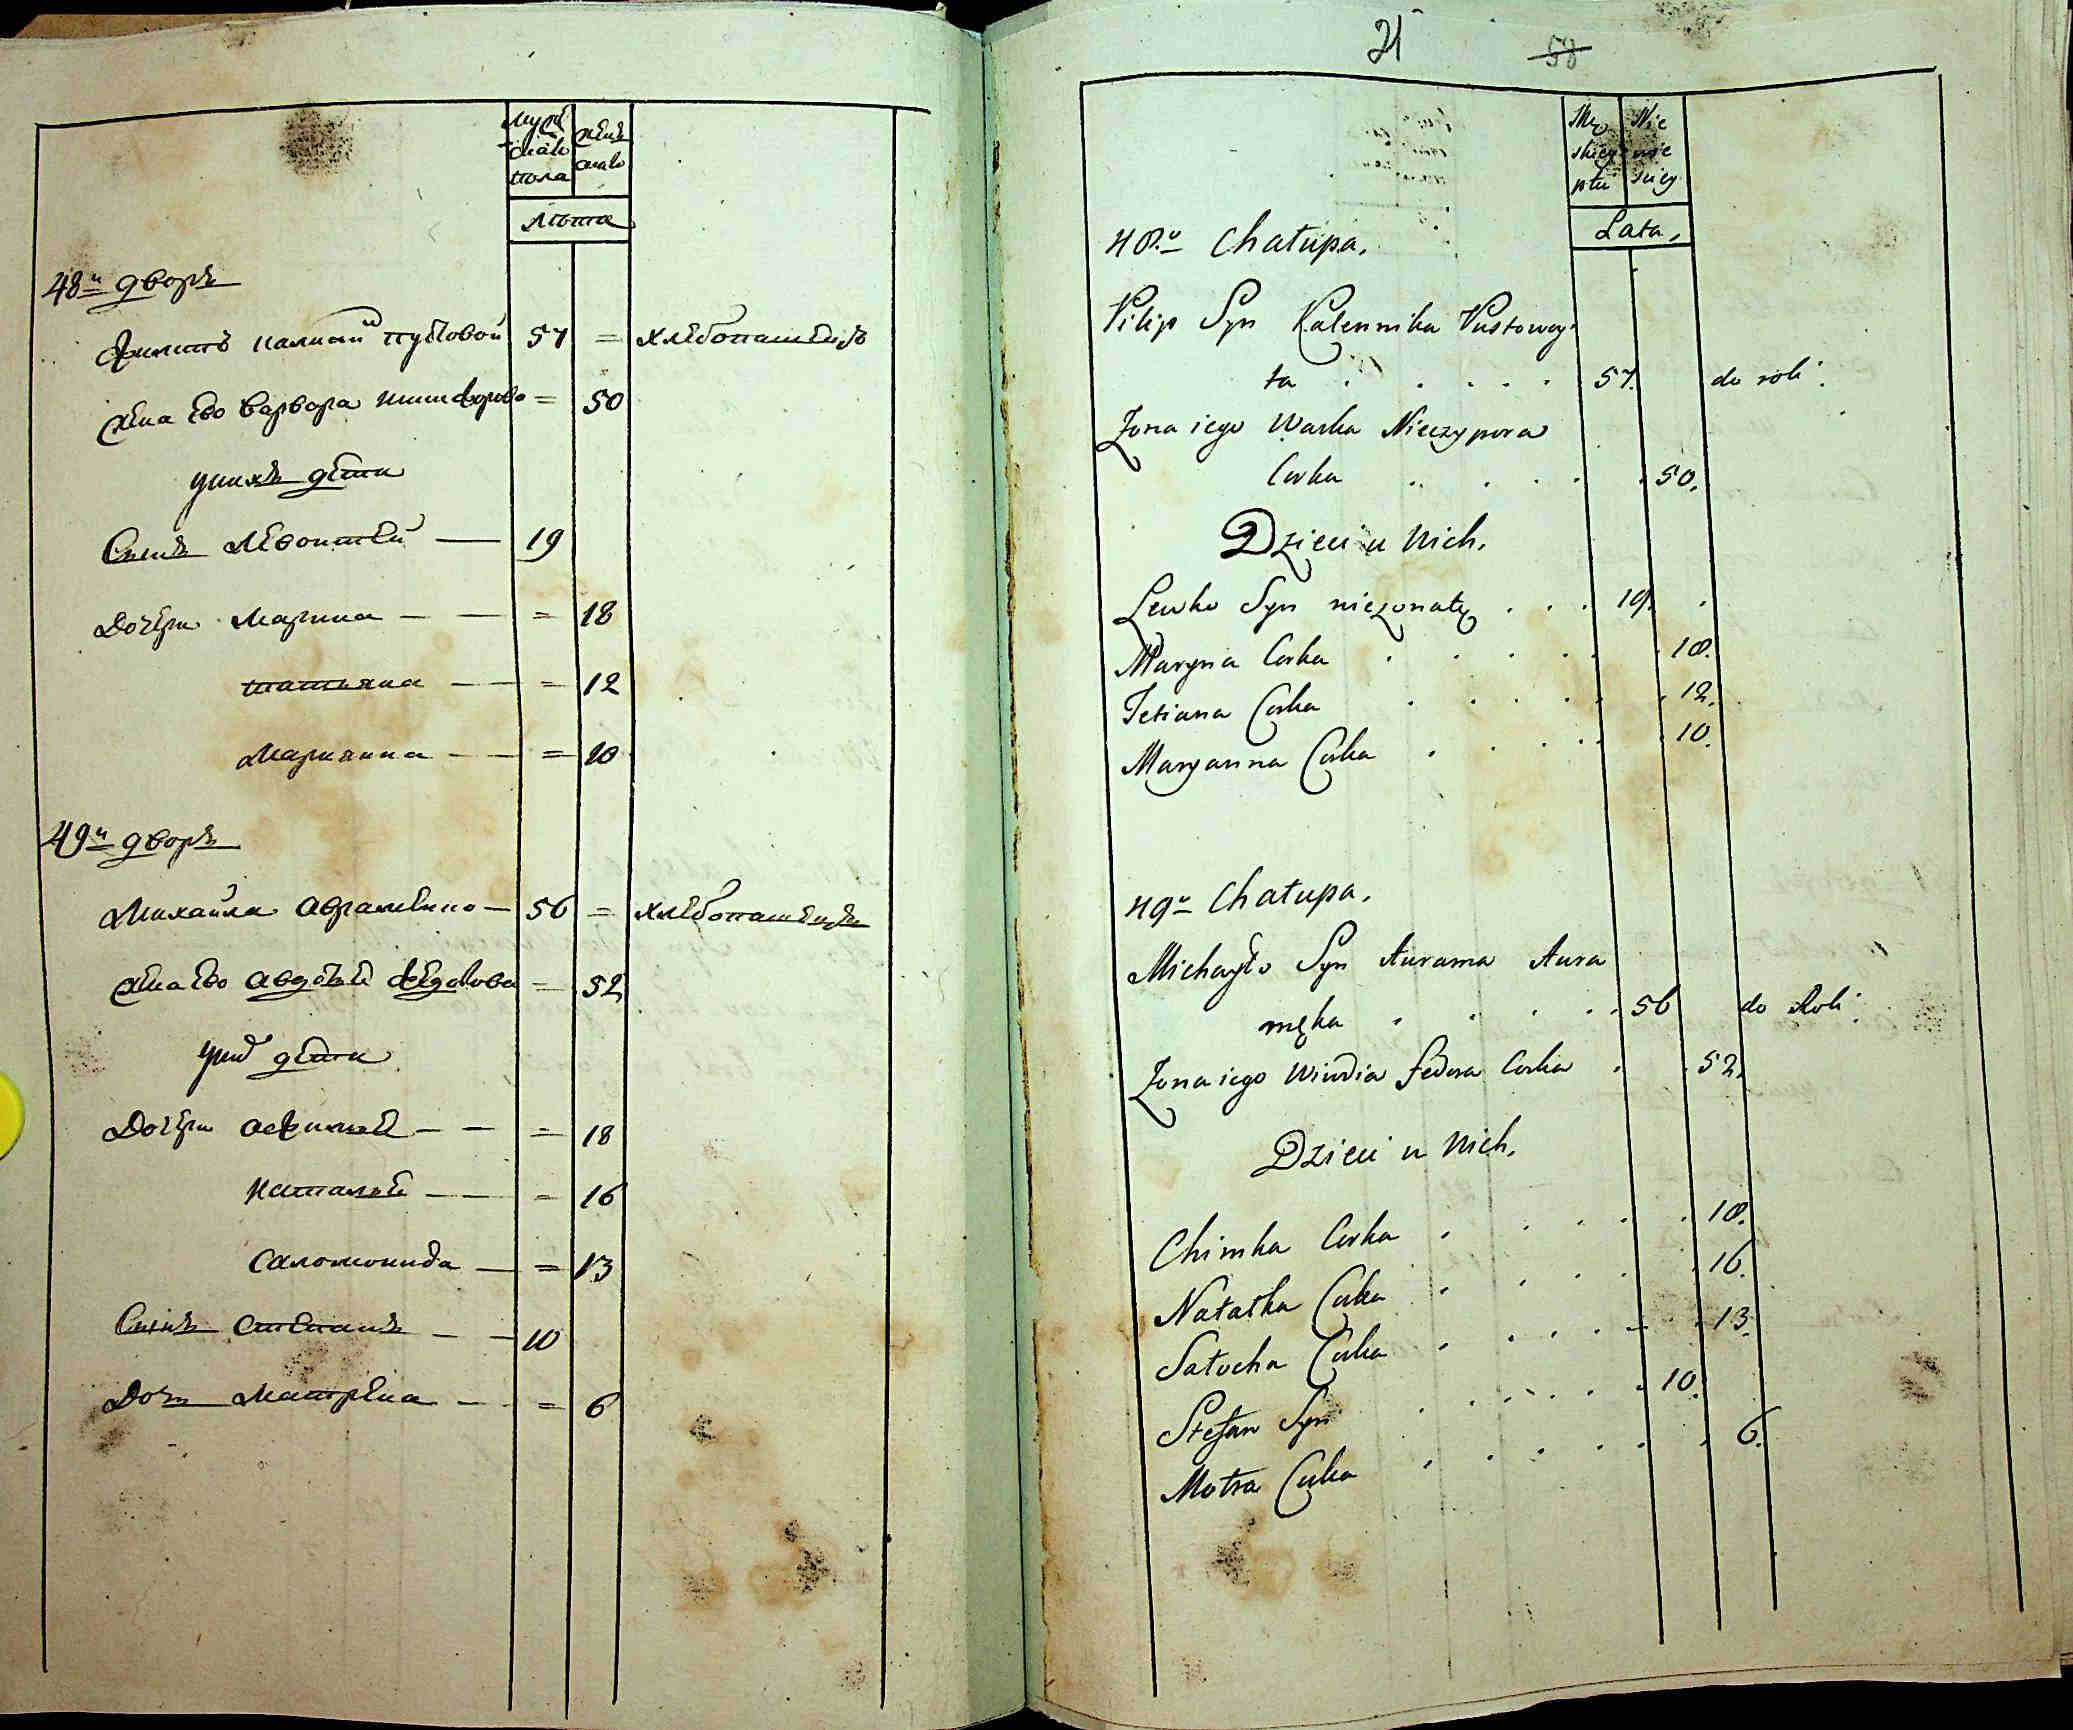 мужеска пола
женска
Лѣта
48й дворъ
Филипъ калинъ пустовой 57 = хлѣбопашецъ
жена ево варвара никифорова = 50
унихъ дѣти
Сынъ Леонтей — 19
Дочери Марина — — = 18
татьяна — — = 12
Марианна — — = 10
49й дворъ
Михайла авраменко — 56 = хлѣбопашецъ
жена ево авдотья федорова = 52
унихъ дѣти
Дочери афимья — — = 18
наталья — — = 16
Саломонида — = 13
Сынъ Степанъ — — 10
Дочь Матрена — — = 6
21 58
Męskiey płci
Niewieściey
Lata,
48.y Chałupa.
Pilip Syn Kalennika Pustowoy-
ta . . . . . 57. do roli.
Zona iego Warka Nieczypora
Corka . . . . 50.
Dzieci u Nich.
Lewko Syn nieżonaty . . . 19.
Maryna Corka . . . . . 18.
Tetiana Corka . . . . . 12.
Maryanna Corka . . . . . 10.
49y Chałupa.
Michayło Syn Aurama Aura
męka . . . . . 56 do Roli.
Zona iego Wiwdia Fedora Corka . . 52.
Dzieci u Nich.
Chimka Corka . . . . . 18.
Natałka Corka . . . . . 16.
Sałocha Corka . . . . . 13.
Stefan Syn . . . . . 10.
Motra Corka . . . . . 6.